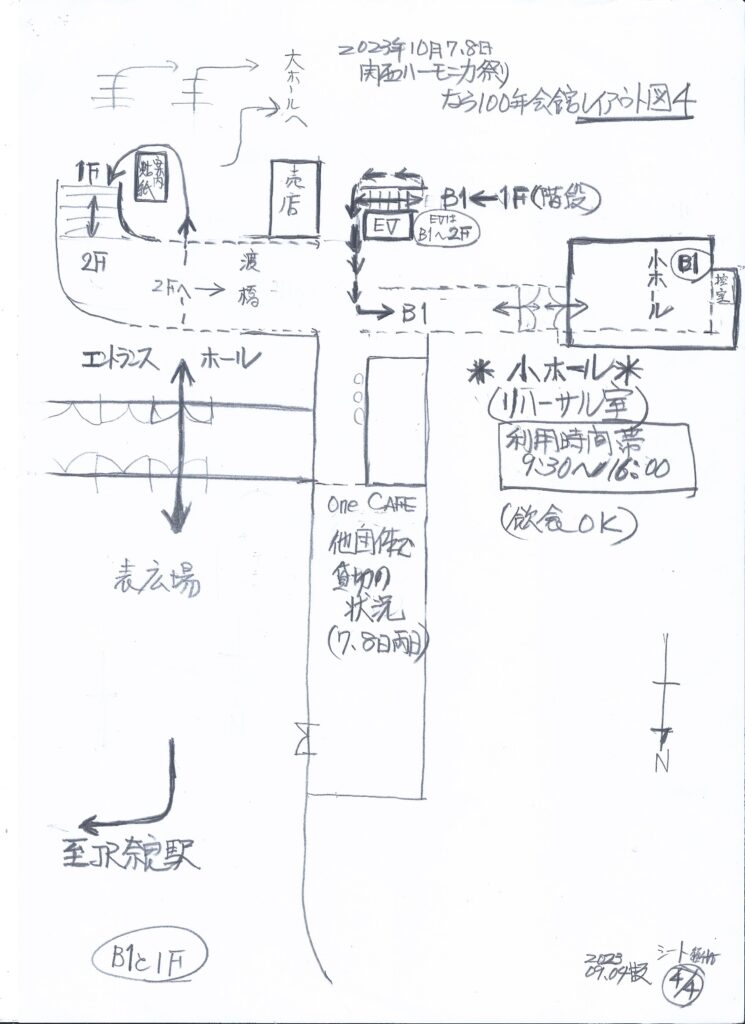 2023年10月7.8日
関西ハーモニカ祭り
なら100年会館レイアウト図4
大ホールへ
1F
案内
貼紙
売店
B1←1F(階段)
EV
EVは
B1〜2F
2F
2Fへ→
渡橋
→B1
小ホール
B1
控室
エントランス ホール
＊小ホール＊
(リハーサル室)
利用時間帯
9:30〜16:00
(飲食OK)
One CAFE
他団体で
貸切の
状況
(7.8日両日)
表広場
N
至JR奈良駅
B1と1F
2023
09.04版
シート
4/4